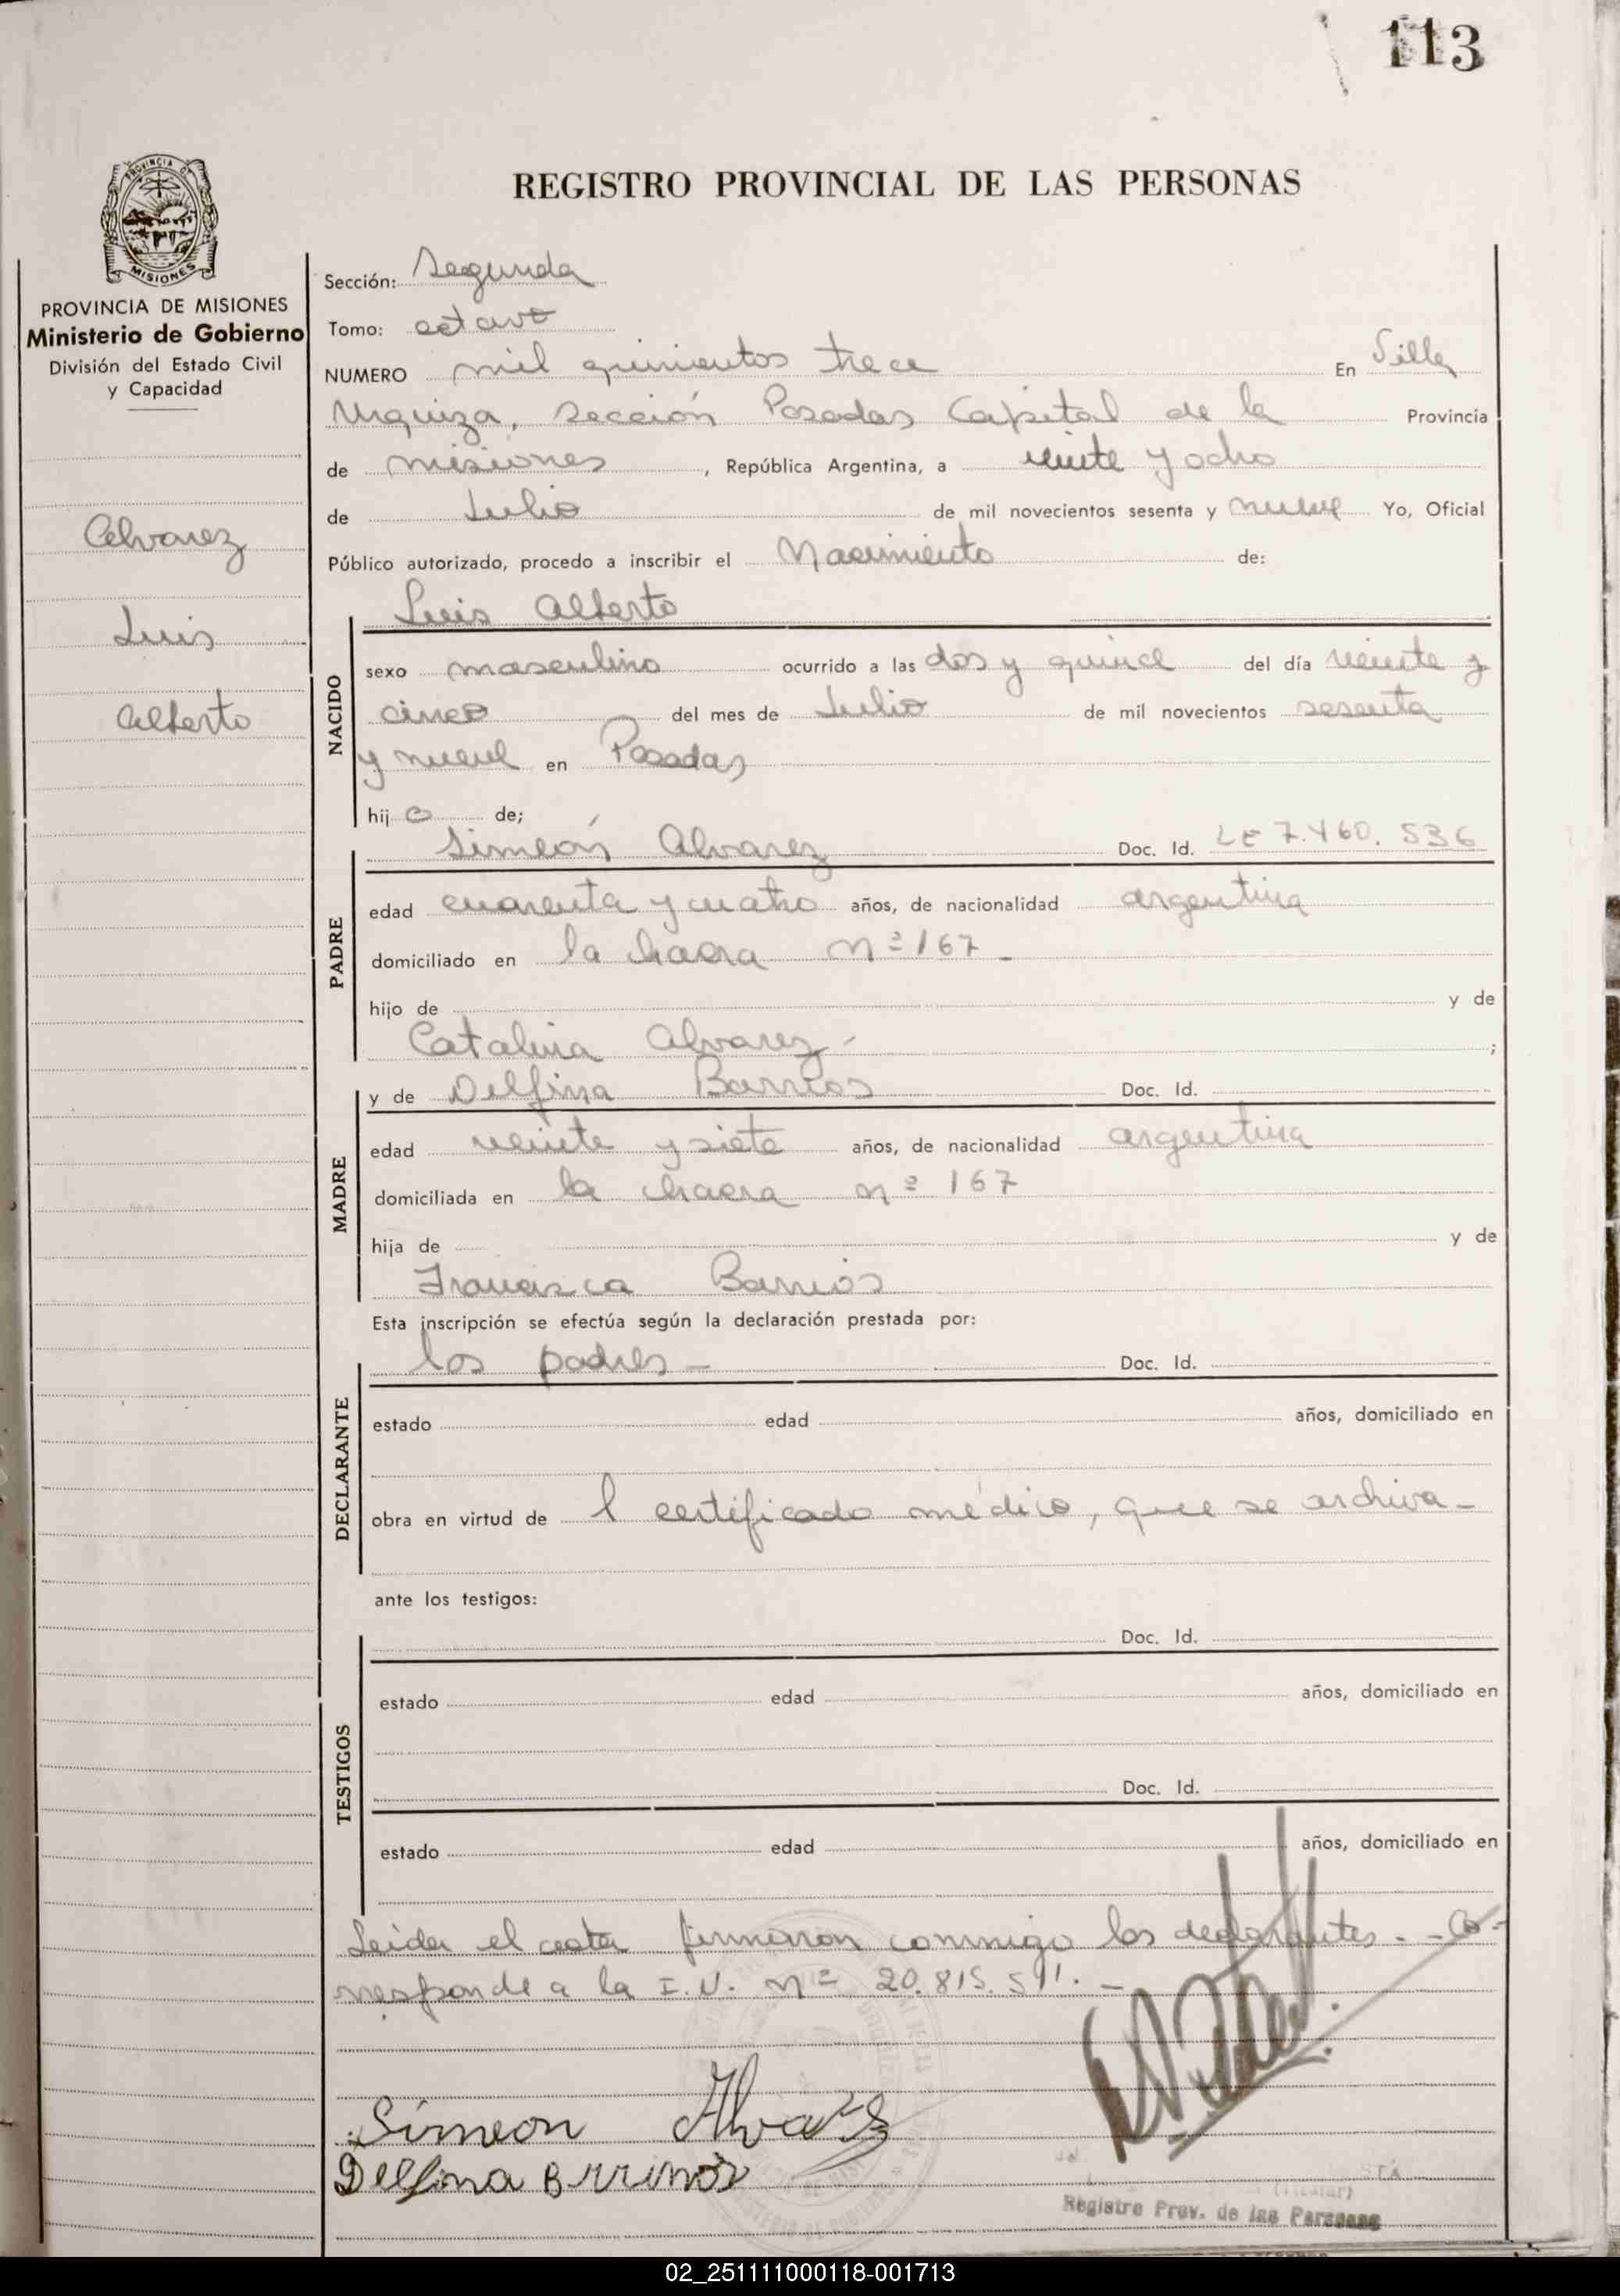 113
PROVINCIA DE
MISIONES
REGISTRO PROVINCIAL DE LAS PERSONAS
PROVINCIA DE MISIONES
Ministerio de Gobierno
División del Estado Civil
y Capacidad
Alvarez
Luis
Alberto
Sección: Segunda
Tomo: octavo
NUMERO mil quinientos trece En Villa
Urquiza, Sección Posadas Capital de la Provincia
de misiones, República Argentina, a veinte y ocho
de Julio de mil novecientos sesenta y nueve Yo, Oficial
Público autorizado, procedo a inscribir el Nacimiento de:
Luis Alberto
NACIDO
sexo masculino ocurrido a las dos y quince del día veinte y
cinco del mes de Julio de mil novecientos sesenta
y nueve en Posadas
hijo de;
PADRE
Simeón Alvarez Doc. Id. LE 7.460.536
edad cuarenta y cuatro años, de nacionalidad argentina
domiciliado en la chacra nº 167 -
hijo de y de
Catalina Alvarez - ;
MADRE
y de Delfina Barrios Doc. Id.
edad veinte y siete años, de nacionalidad argentina
domiciliada en la chacra nº 167
hija de y de
Francisca Barrios
Esta inscripción se efectúa según la declaración prestada por:
DECLARANTE
los padres - Doc. Id.
estado edad años, domiciliado en
obra en virtud de l certificado médico, que se archiva -
ante los testigos:
TESTIGOS
Doc. Id.
estado edad años, domiciliado en
Doc. Id.
estado edad años, domiciliado en
Leida el acta firmaron conmigo los declarantes. - Co-
rresponde a la I.N. nº 20.815.511. -
Simeon Alvarez
Delfina Brrinos
Registro Prov. de las Personas
02_251111000118-001713